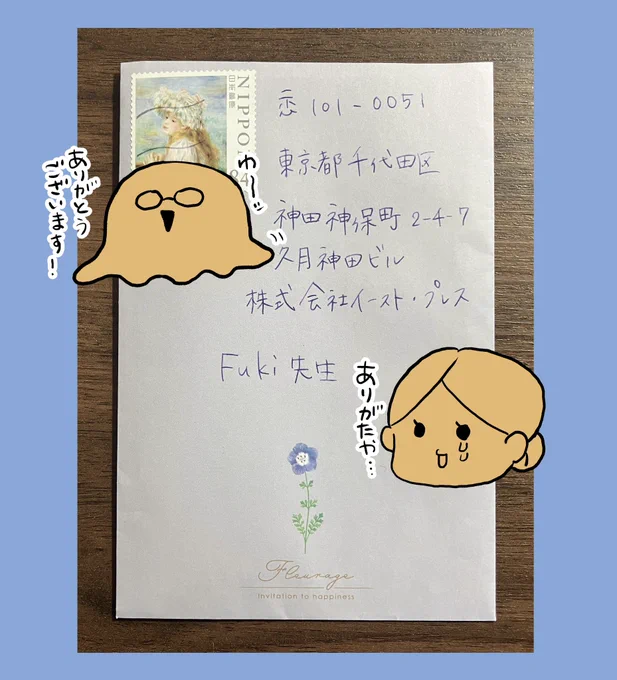 NIPPO
日本郵便
恋 101-0051
東京都千代田区
神田神保町 2-4-7
久月神田ビル
株式会社イースト・プレス
Fuki 先生
わーッ
ありがとう
ございます!
ありがたや…
Fleurage
Invitation to happiness